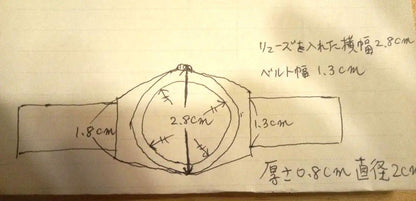 リューズを入れた横幅2.8cm
ベルト幅 1.3cm
1.8cm
2.8cm
1.3cm
厚さ0.8cm 直径2cm